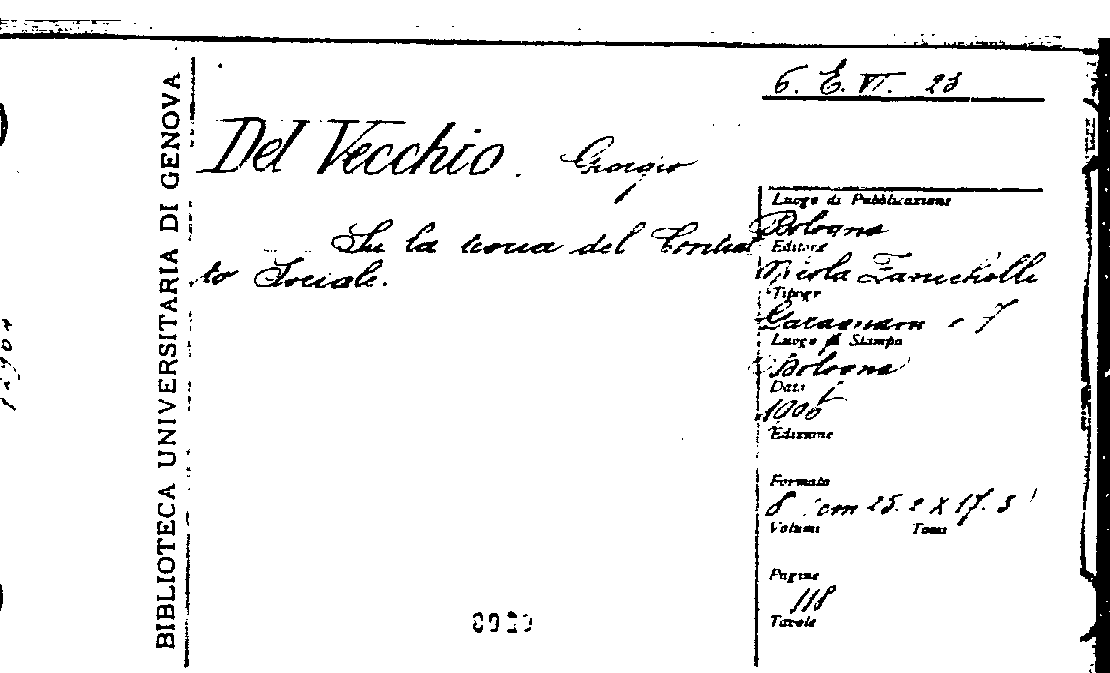 BIBLIOTECA UNIVERSITARIA DI GENOVA
6. E. VI. 23
Del Vecchio. Giorgio
Su la teoria del Contrat
to Sociale.
Luogo di Pubblicazione
Bologna
Editore
Nicola Zanichelli
Tipogr
Garagnani e F
Luogo di Stampa
Bologna
Data
1906
Edizione
Formato
8 (cm 25.2 X 17.5)
Volumi Tomi
Pagine
118
Tavole